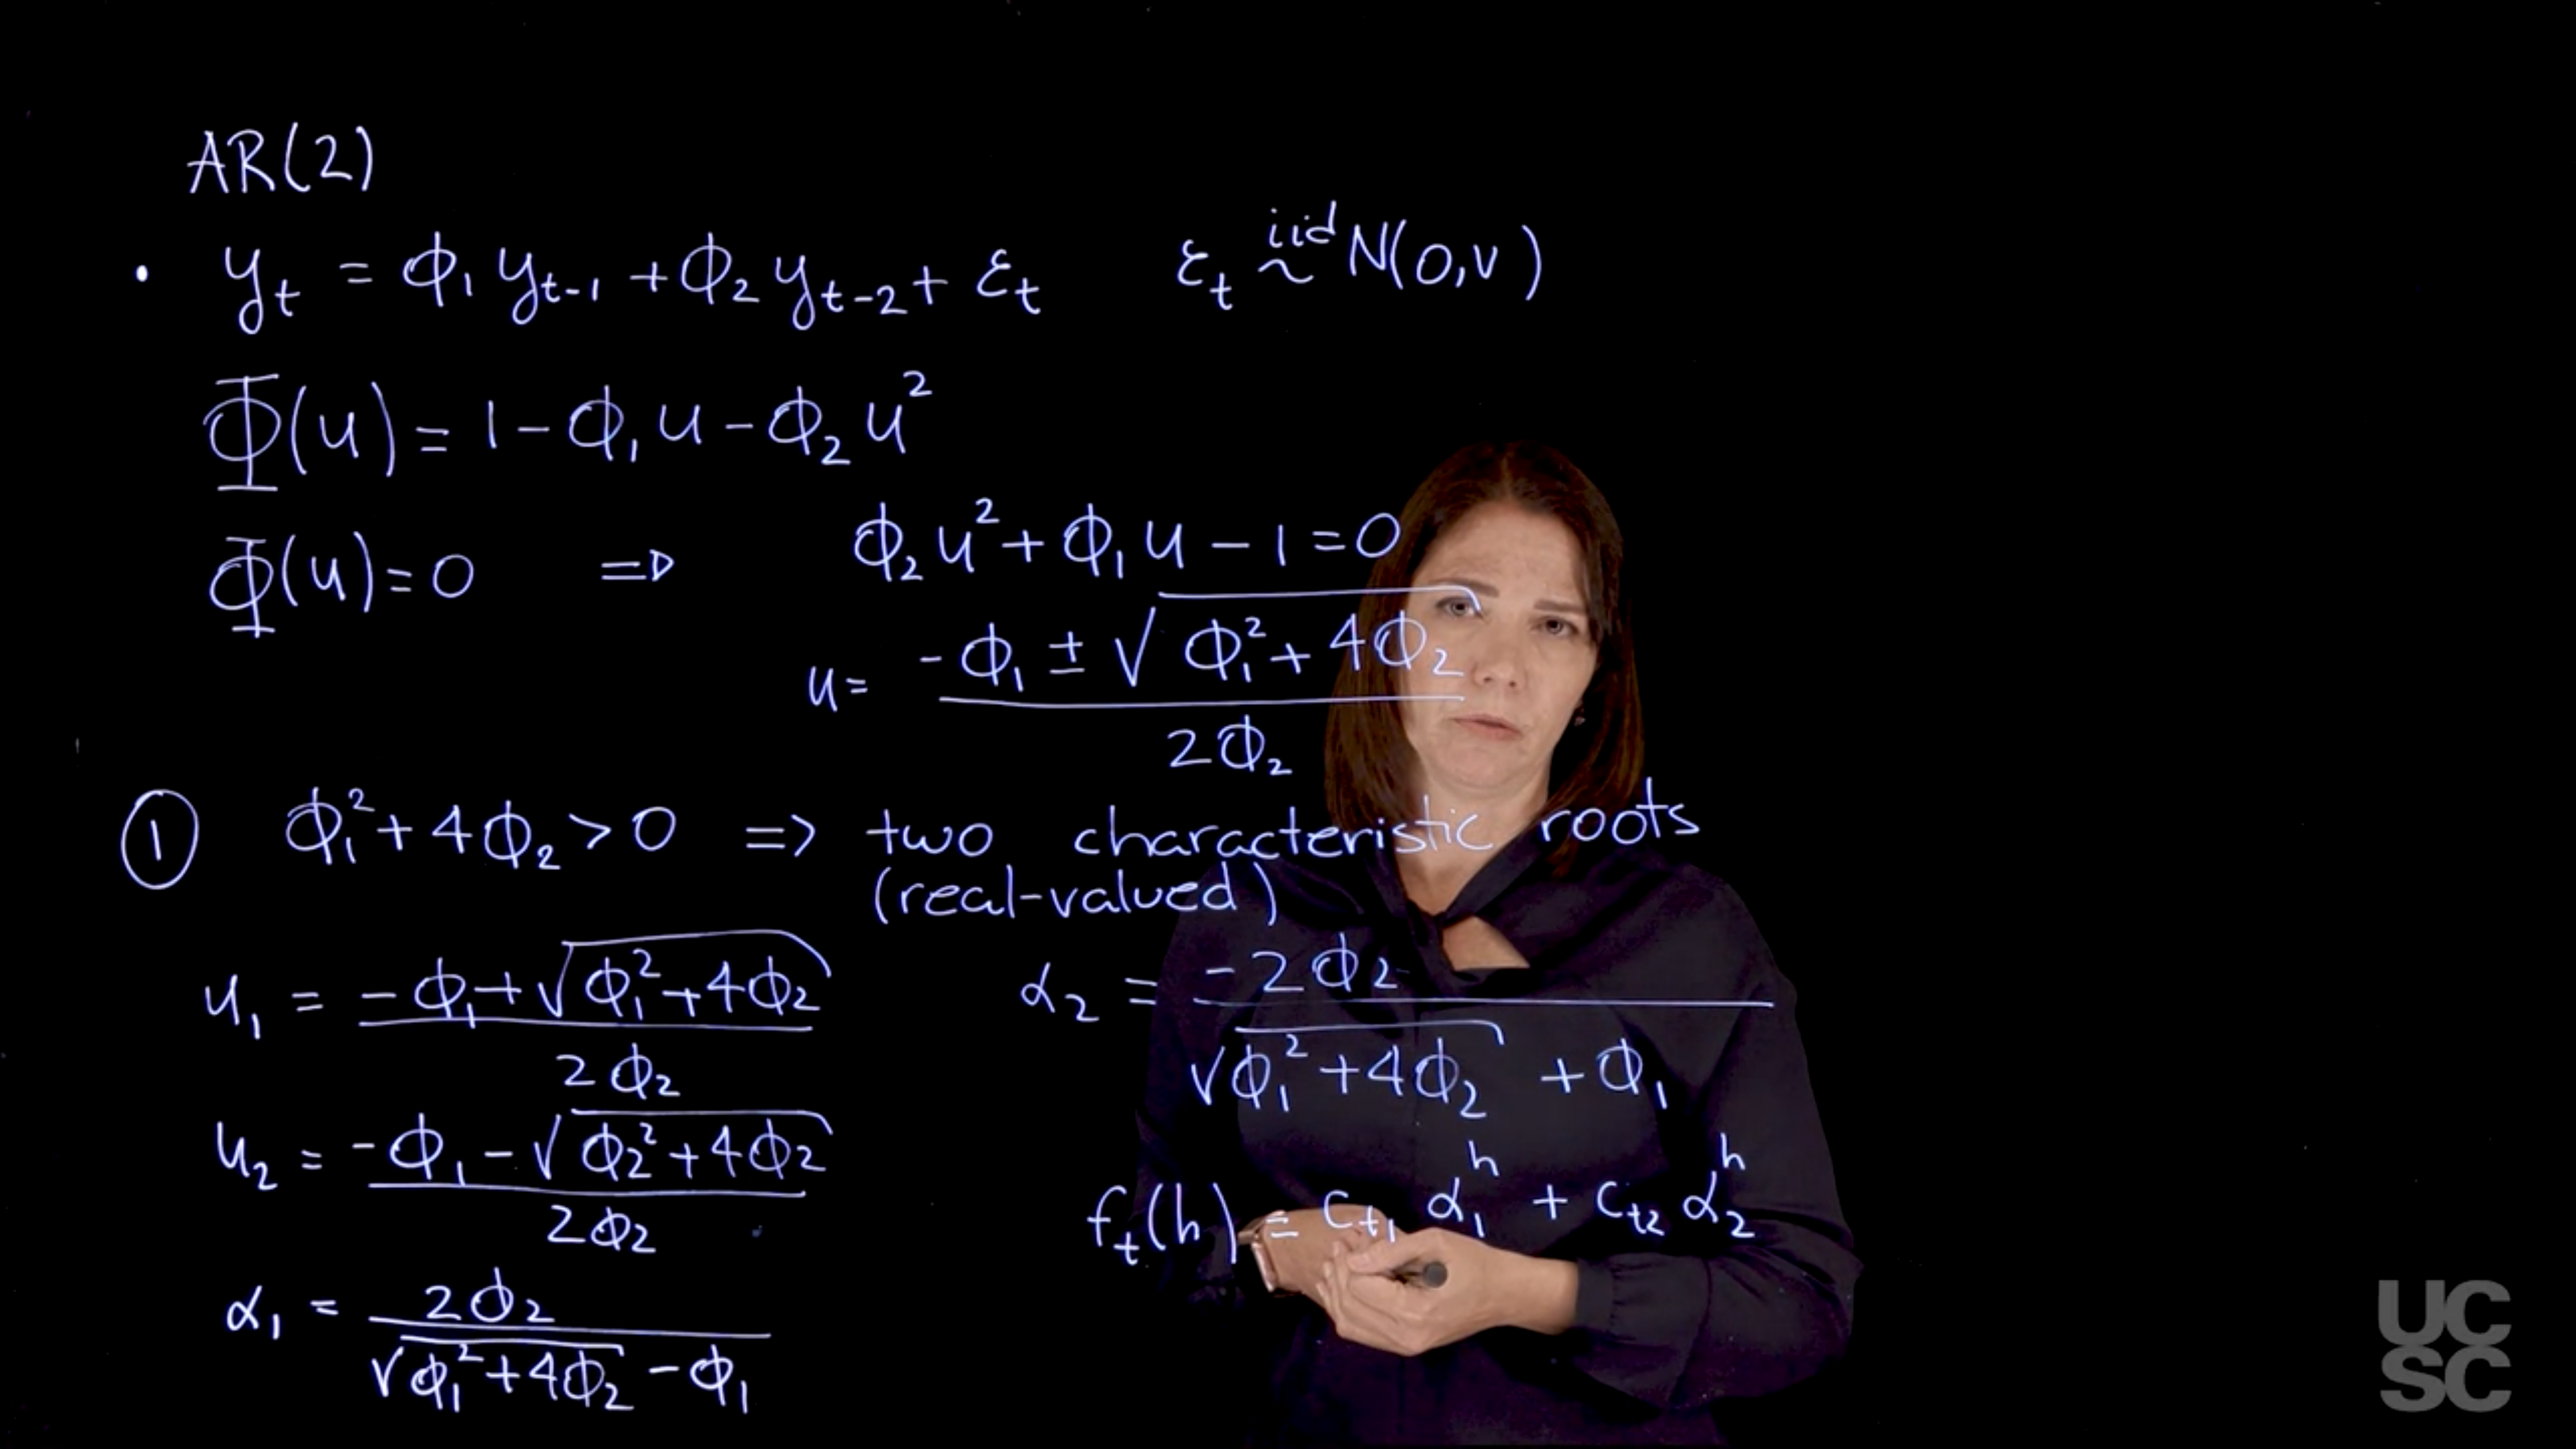 AR(2)
• y_t = ϕ_1 y_{t-1} + ϕ_2 y_{t-2} + ε_t    ε_t ~^{iid} N(0, v)
Φ(u) = 1 - ϕ_1 u - ϕ_2 u^2
Φ(u) = 0 => ϕ_2 u^2 + ϕ_1 u - 1 = 0
u = (-ϕ_1 ± √(ϕ_1^2 + 4ϕ_2)) / (2ϕ_2)
① ϕ_1^2 + 4ϕ_2 > 0 => two characteristic roots
(real-valued)
u_1 = (-ϕ_1 + √(ϕ_1^2 + 4ϕ_2)) / (2ϕ_2)
u_2 = (-ϕ_1 - √(ϕ_2^2 + 4ϕ_2)) / (2ϕ_2)
α_1 = 2ϕ_2 / (√(ϕ_1^2 + 4ϕ_2) - ϕ_1)
α_2 = -2ϕ_2 / (√(ϕ_1^2 + 4ϕ_2) + ϕ_1)
f_t(h) = c_{t1} α_1^h + c_{t2} α_2^h
UC
SC